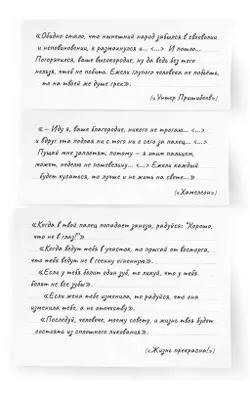 «Обидно стало, что нынешний народ забылся в своеволии
и неповиновении, я размахнулся и... <...> И пошло...
Погорячился, ваше высокородие, ну да ведь без того
нельзя, чтоб не побить. Ежели глупого человека не побьёшь,
то на твоей же душе грех».
(«Унтер Пришибеев»)
«– Иду я, ваше благородие, никого не трогаю... <...>
и вдруг эта подлая ни с того ни с сего за палец... <...>
Пущай мне заплотят, потому – я этим пальцем,
может, неделю не пошевельну... <...> Ежели каждый
будет кусаться, то лучше и не жить на свете...»
(«Хамелеон»)
«Когда в твой палец попадает заноза, радуйся: "Хорошо,
что не в глаз!"»
«Когда ведут тебя в участок, то прыгай от восторга,
что тебя ведут не в геенну огненную».
«Если у тебя болит один зуб, то ликуй, что у тебя
болят не все зубы».
«Если жена тебе изменила, то радуйся, что она
изменила тебе, а не отечеству».
«Последуй, человече, моему совету, и жизнь твоя будет
состоять из сплошного ликования».
(«Жизнь прекрасна!»)